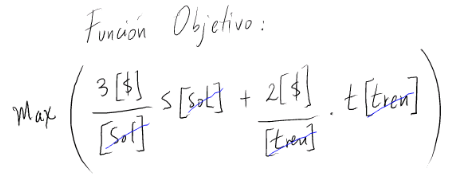 Función Objetivo:
Max ( 3[$]/[sol] s[sol] + 2[$]/[tren] . t[tren] )